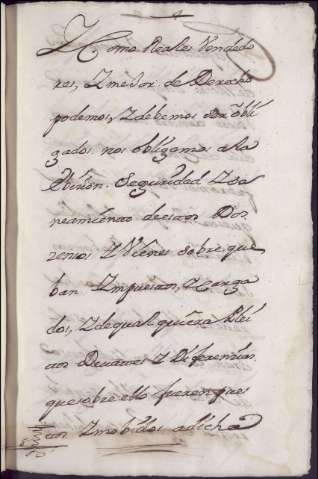 Y Como Reales Vendedo
res, Y mejor de Derecho
podemos, Y debemos ser obli
gados nos obligamos a la
Evicion Seguridad Y sa
neamiento de estos Dos
zensos Y Vienes sobre que
ban Ympuestos, Y Carga
dos, Y de qualquiera Plei
tos Devates Y Diferencias
que sobre ello fueren pues
tos Y mobidos a dicha